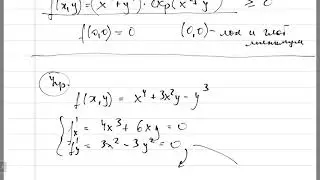 f(x,y)=(x² + y²) · exp(x² + y²) ≥ 0
f(0,0) = 0 (0,0) - лок и глоб
минимум
Упр.
f(x,y) = x⁴ + 3x²y - y³
f'x = 4x³ + 6xy = 0
f'y = 3x² - 3y² = 0